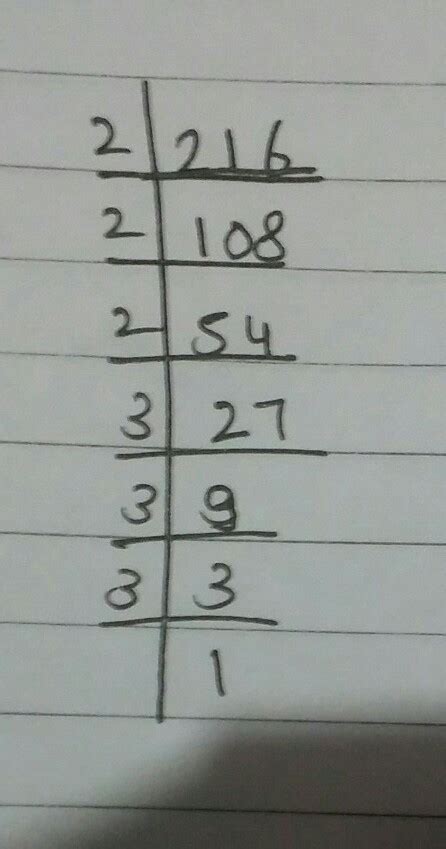 2 216
2 108
2 54
3 27
3 9
3 3
1